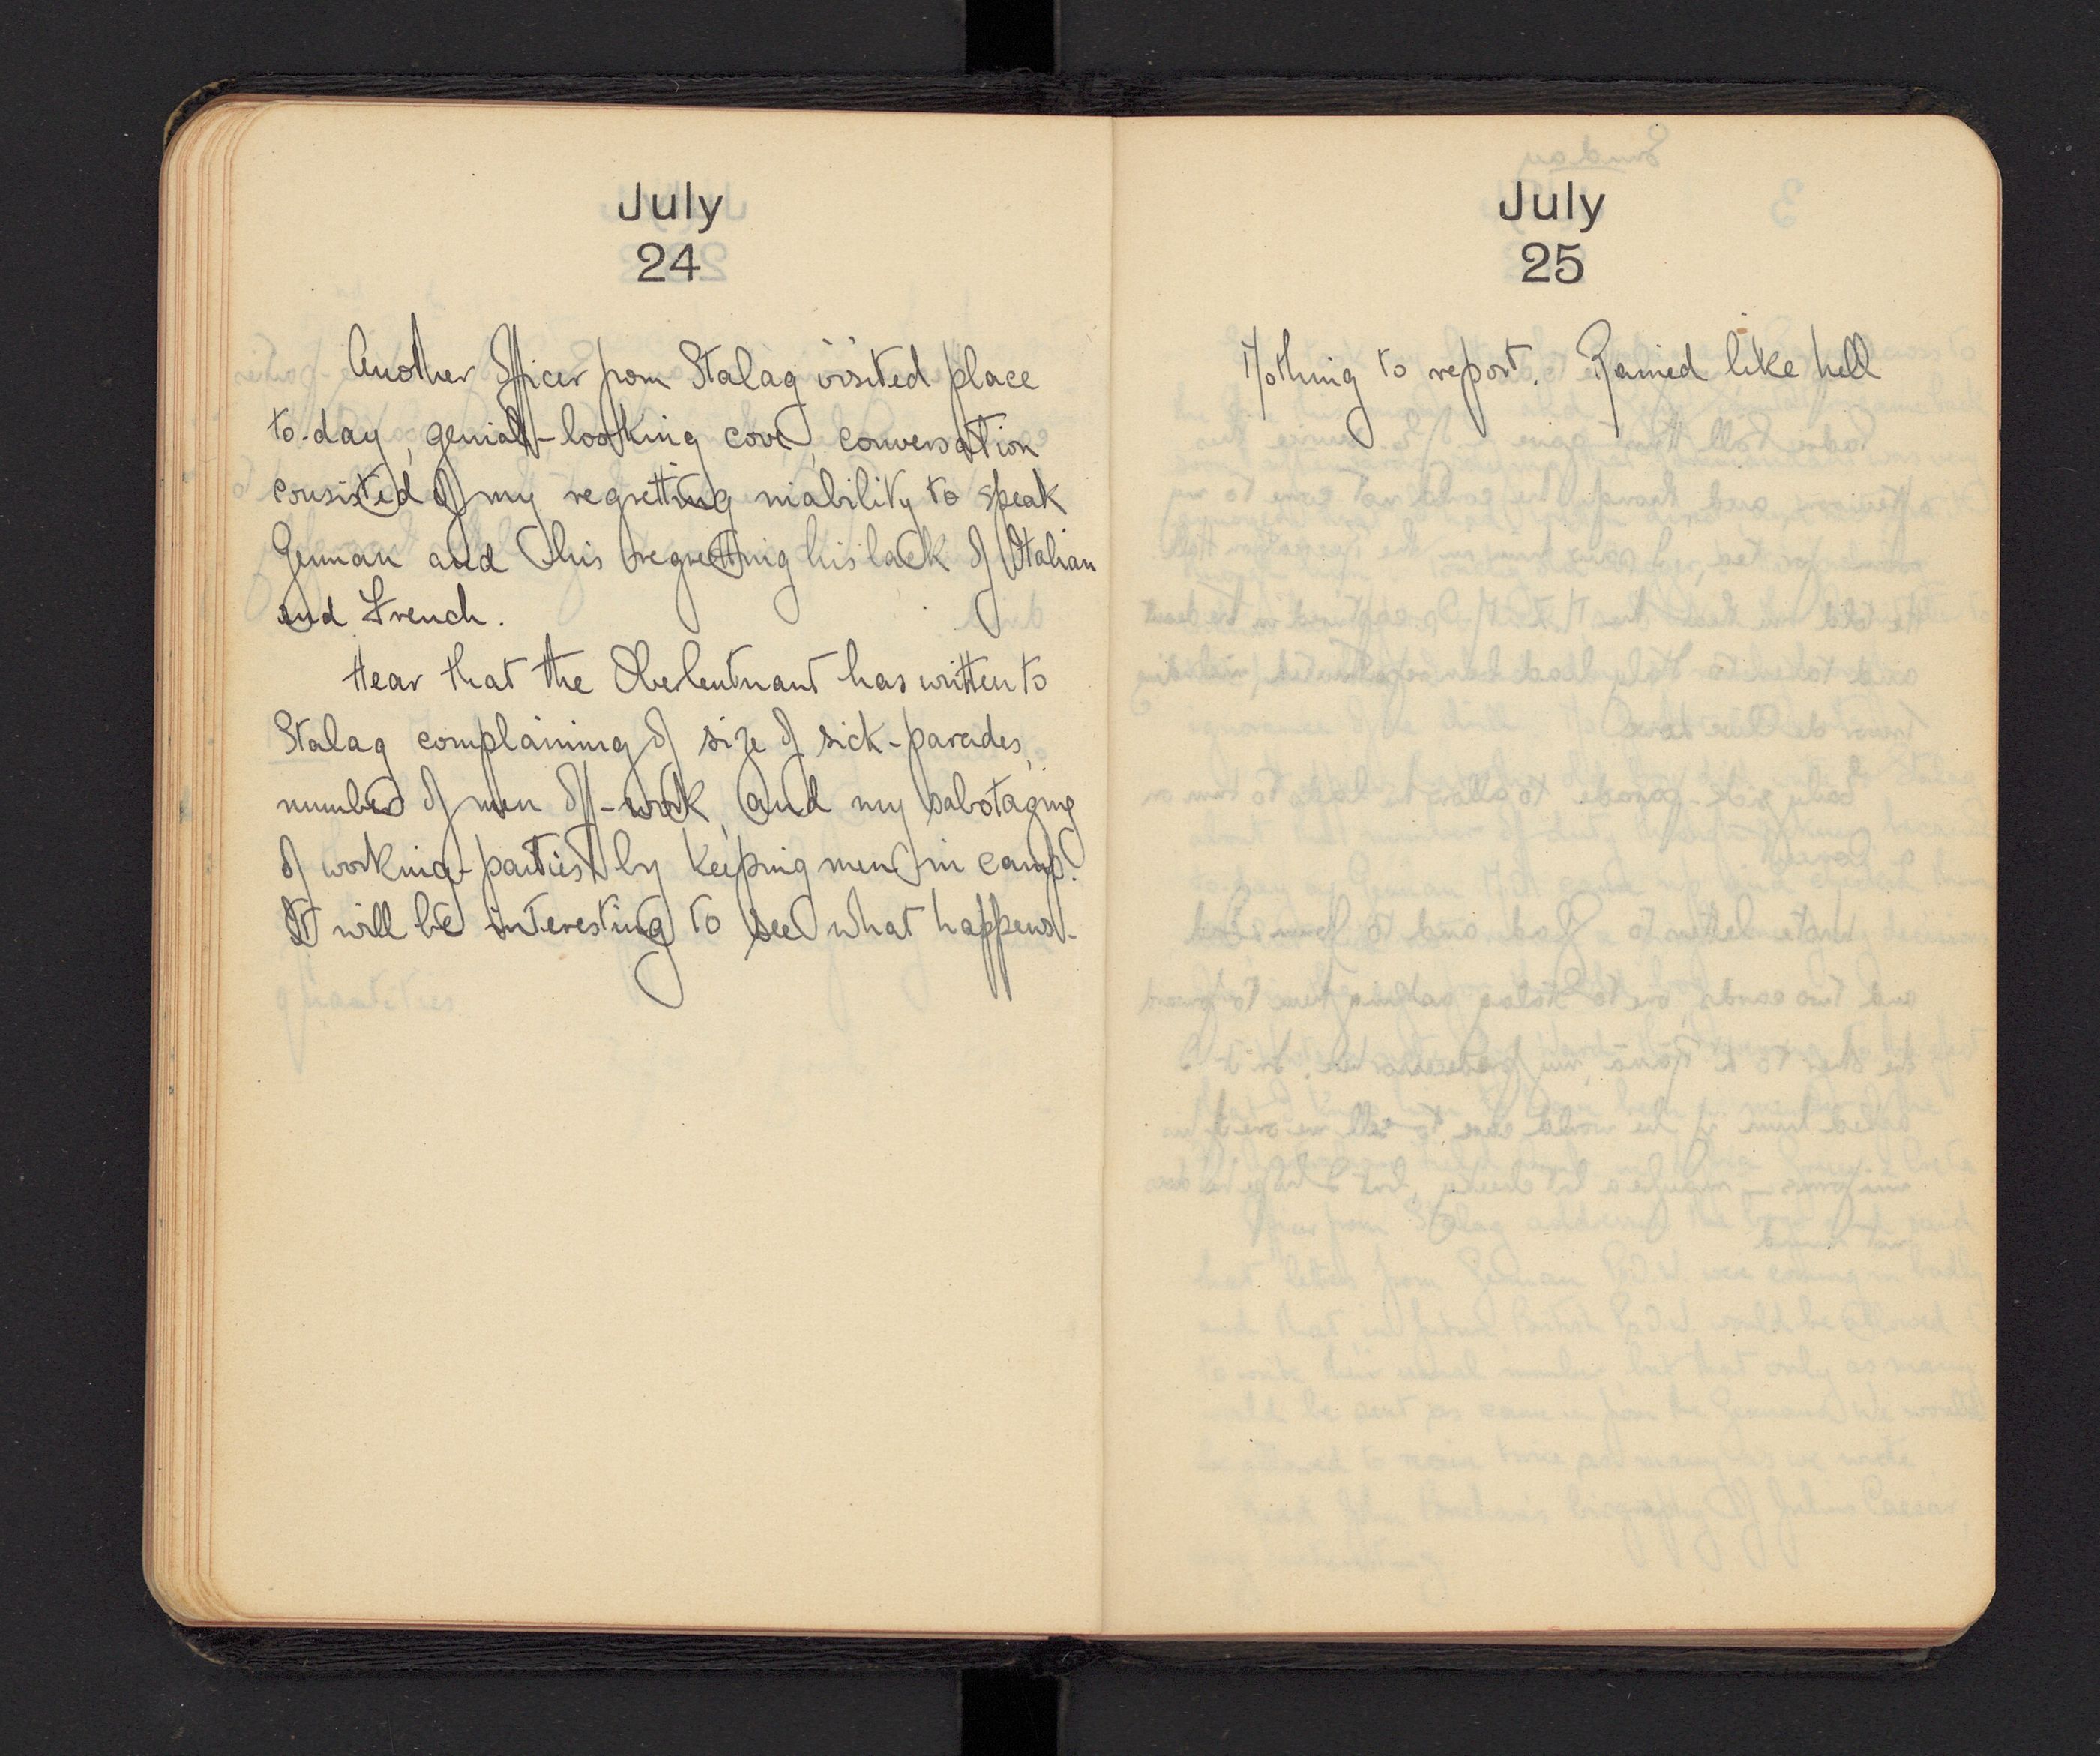 July
24
Another Officer from Stalag visited place
to-day, genial-looking cove, conversation
consisted of my regretting inability to speak
German and his regretting his lack of Italian
and French.
Hear that the Oberleutnant has written to
Stalag complaining of size of sick-parades,
number of men off-work, and my sabotaging
of working-parties by keeping men in camp.
It will be interesting to see what happens.
July
25
Nothing to report. Rained like hell